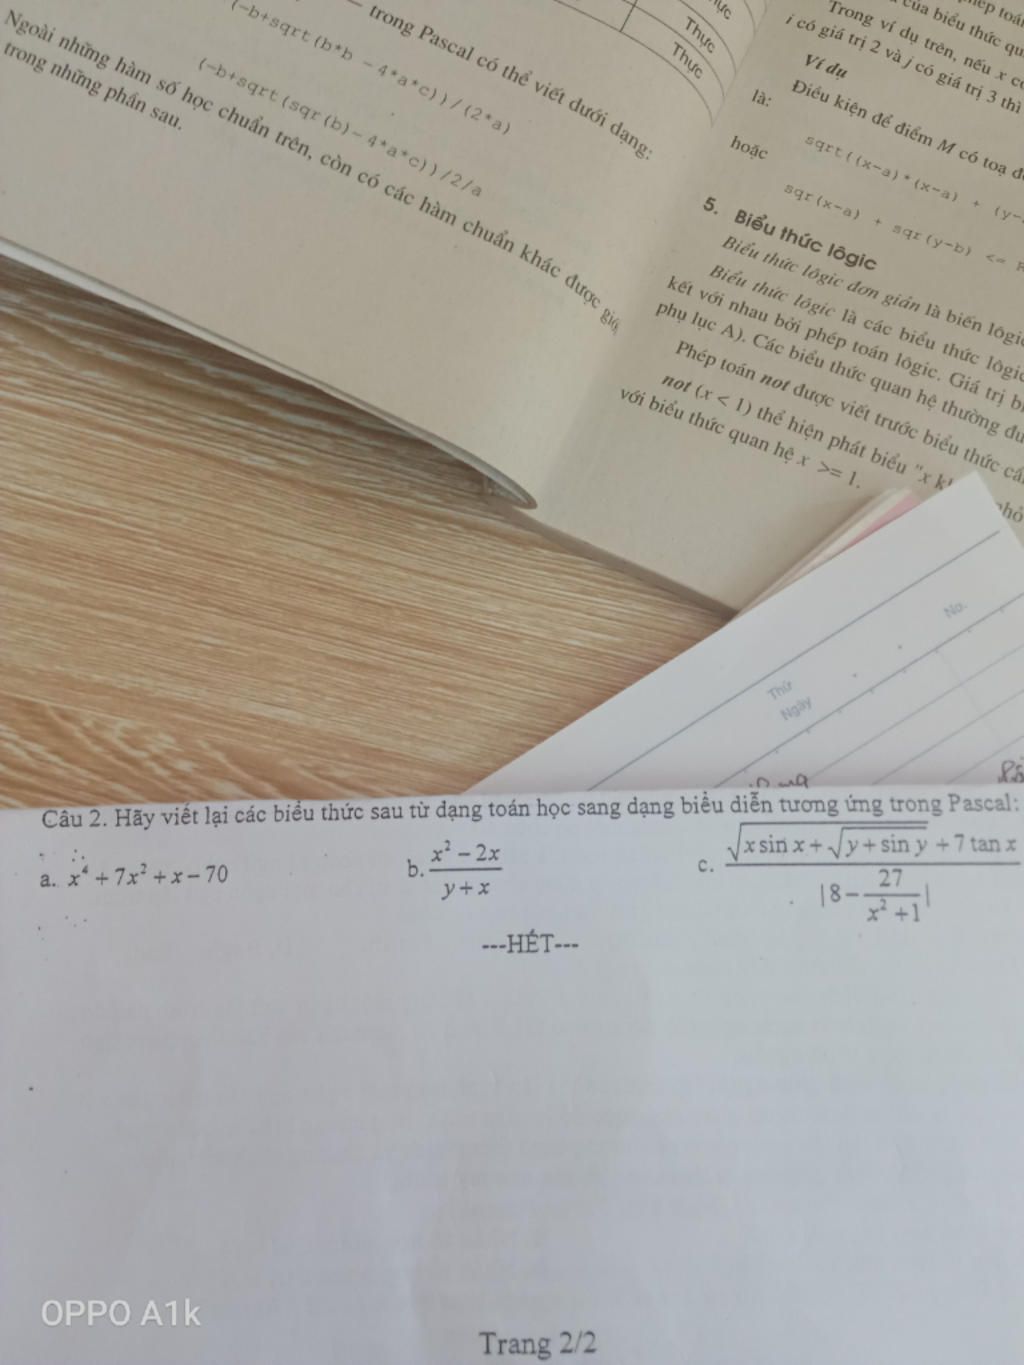 — trong Pascal có thể viết dưới dạng:
(-b+sqrt(b*b - 4*a*c))/(2*a)
(-b+sqrt(sqr(b)-4*a*c))/2/a
Ngoài những hàm số học chuẩn trên, còn có các hàm chuẩn khác được giới
trong những phần sau.
Thực
Thực
của biểu thức
Trong ví dụ trên, nếu x
i có giá trị 2 và j có giá trị 3 thì
Ví dụ
Điều kiện để điểm M có toạ
là:
sqrt((x-a)*(x-a) + (y-
hoặc
sqr(x-a) + sqr(y-b) <=
5. Biểu thức lôgic
Biểu thức lôgic đơn giản là biến lôgic
Biểu thức lôgic là các biểu thức lôgic
kết với nhau bởi phép toán lôgic. Giá trị
phụ lục A). Các biểu thức quan hệ thường
Phép toán not được viết trước biểu thức
not (x < 1) thể hiện phát biểu "x
với biểu thức quan hệ x >= 1.
No.
Thứ
Ngày
Câu 2. Hãy viết lại các biểu thức sau từ dạng toán học sang dạng biểu diễn tương ứng trong Pascal:
a. x⁴ + 7x² + x – 70 b. (x² – 2x)/(y + x) c. (√(x sin x + √(y + sin y)) + 7 tan x)/|8 – 27/(x² + 1)|
---HẾT---
OPPO A1k
Trang 2/2